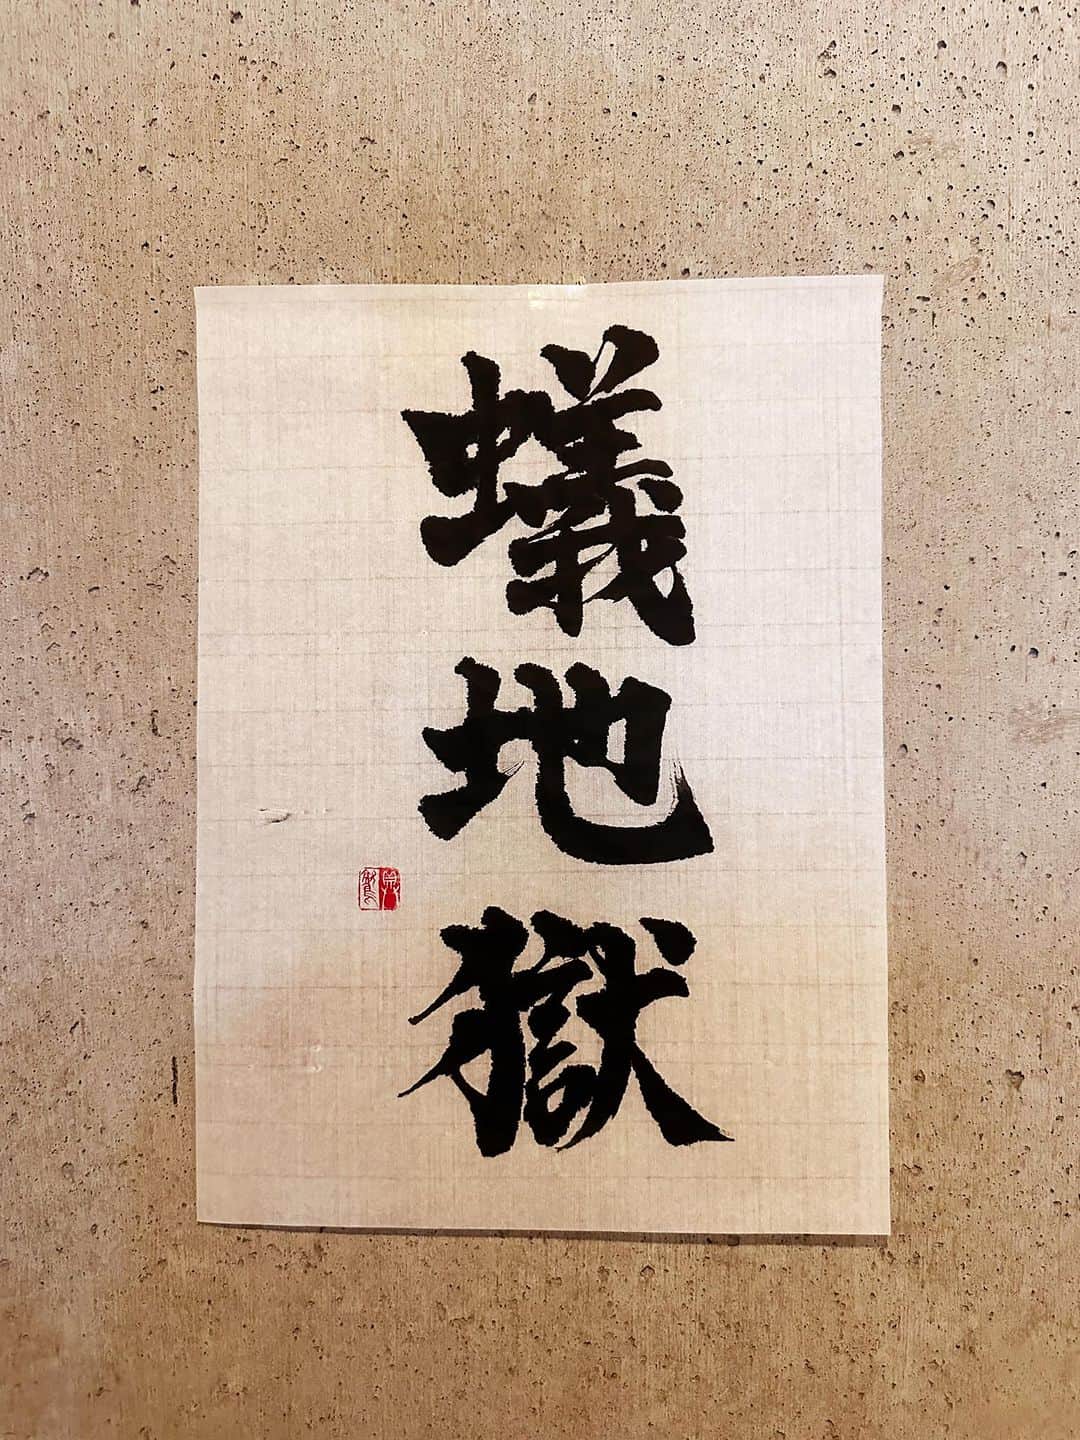 蟻地獄